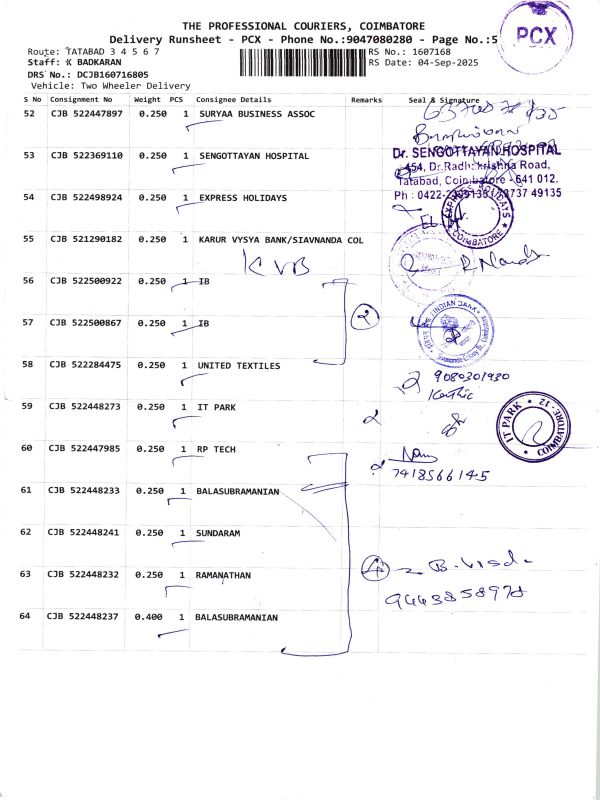 THE PROFESSIONAL COURIERS, COIMBATORE
Delivery Runsheet - PCX - Phone No.:9047080280 - Page No.:5
PCX
Route: TATABAD 3 4 5 6 7
RS No.: 1607168
Staff: K BADKARAN
RS Date: 04-Sep-2025
DRS No.: DCJB160716805
Vehicle: Two Wheeler Delivery
S No Consignment No Weight PCS Consignee Details Remarks Seal & Signature
52 CJB 522447897 0.250 1 SURYAA BUSINESS ASSOC
53 CJB 522369110 0.250 1 SENGOTTAYAN HOSPITAL
Dr. SENGOTTAYAN HOSPITAL
454, Dr.Radhakrishna Road,
Tatabad, Coimbatore - 641 012.
54 CJB 522498924 0.250 1 EXPRESS HOLIDAYS
EXPRESS HOLIDAYS COIMBATORE
55 CJB 521290182 0.250 1 KARUR VYSYA BANK/SIAVNANDA COL
KVB
56 CJB 522500922 0.250 1 IB
2
57 CJB 522500867 0.250 1 IB
INDIAN BANK
58 CJB 522284475 0.250 1 UNITED TEXTILES
9080301930
Karthic
59 CJB 522448273 0.250 1 IT PARK
IT PARK COIMBATORE-12
60 CJB 522447985 0.250 1 RP TECH
7418566145
61 CJB 522448233 0.250 1 BALASUBRAMANIAN
62 CJB 522448241 0.250 1 SUNDARAM
63 CJB 522448232 0.250 1 RAMANATHAN
4
9443858978
64 CJB 522448237 0.400 1 BALASUBRAMANIAN